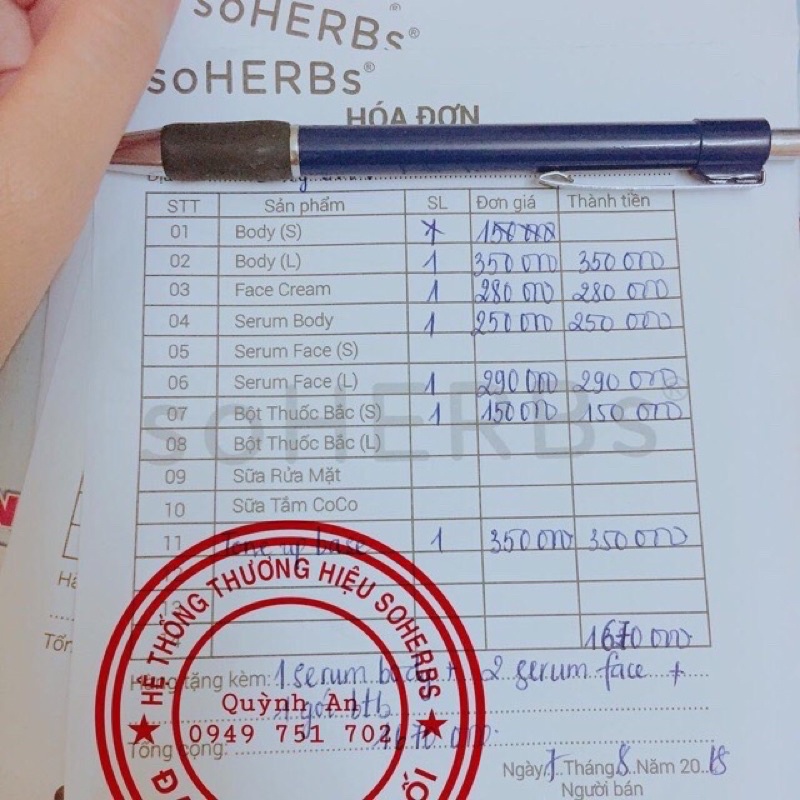 soHERBs®
soHERBs®
HÓA ĐƠN
STT Sản phẩm SL Đơn giá Thành tiền
01 Body (S) 150 000
02 Body (L) 1 350 000 350 000
03 Face Cream 1 280 000 280 000
04 Serum Body 1 250 000 250 000
05 Serum Face (S)
06 Serum Face (L) 1 290 000 290 000
07 Bột Thuốc Bắc (S) 1 150 000 150 000
08 Bột Thuốc Bắc (L)
09 Sữa Rửa Mặt
10 Sữa Tắm CoCo
11 Tone up base 1 350 000 350 000
1670 000
soHERBs®
Hàng tặng kèm: 1 serum body + 2 serum face +
1 gói btb
Tổng cộng: 1670 000
HỆ THỐNG THƯƠNG HIỆU SOHERBS
Quỳnh An
0949 751 702
Ngày 7 Tháng 8 Năm 2018
Người bán